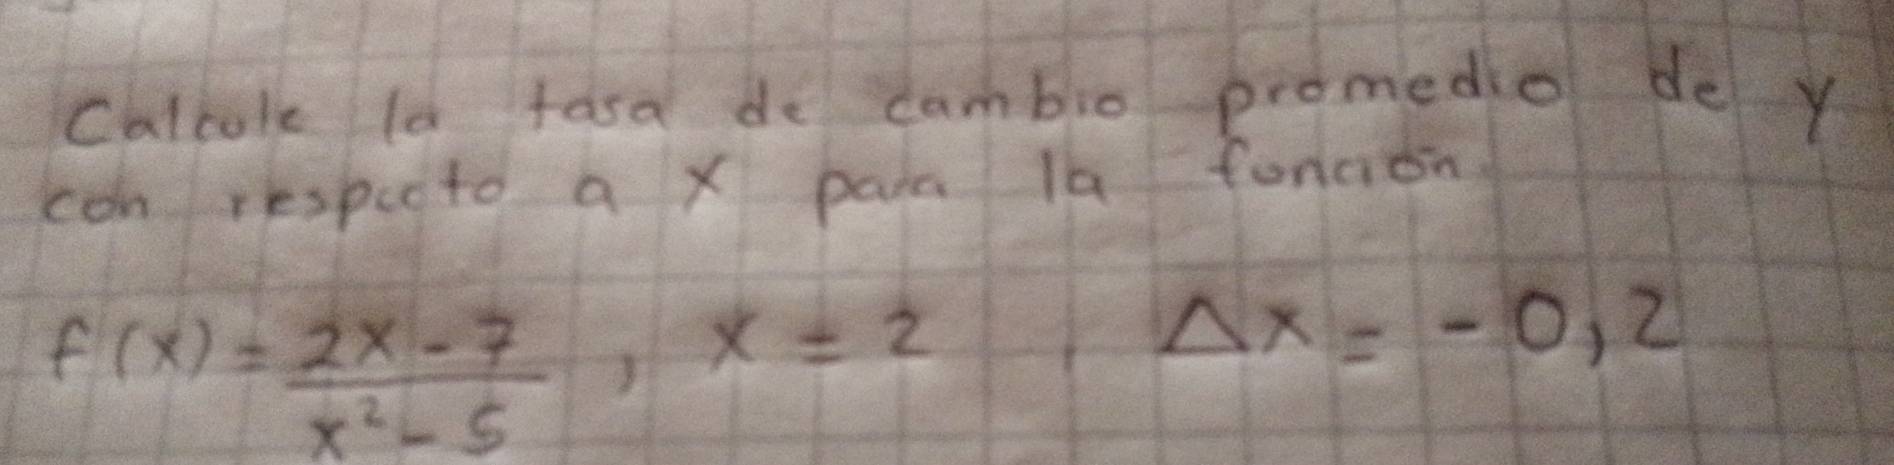 Calcule la tasa de cambio promedio de y
con respecto a x para la función
f(x) = \frac{2x-7}{x^2-5}, x = 2, Δx = -0,2